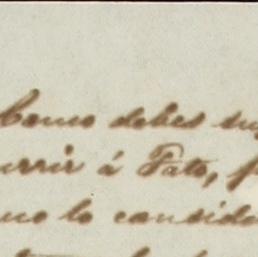 Como debes su
urrir á Fato, p
mo lo conside